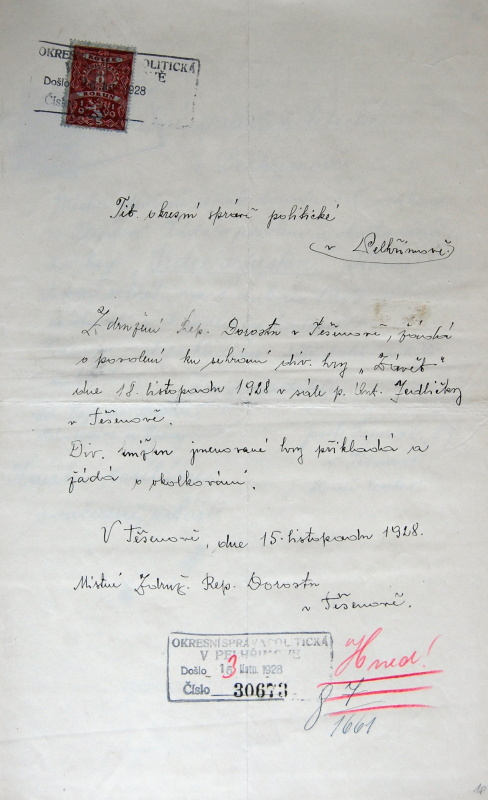 OKRESNÍ POLITICKÁ
V
KOLEK
8
KORUN
Došlo 1928
Číslo
Tit. okresní správě politické
v Pelhřimově.
Združení Rep. Dorostu v Těšenově, žádá
o povolení ku sehrání div. hry „Závěť"
dne 18. listopadu 1928 v sále p. Ant. Jedličky
v Těšenově.
Div. jmenované hry přikládá a
žádá o okolkování.
V Těšenově, dne 15. listopadu 1928.
Místní Združ. Rep. Dorostu
v Těšenově.
OKRESNÍ SPRÁVA POLITICKÁ
V PELHŘIMOVĚ
Došlo 1928
Číslo 30673
Hned!
1661